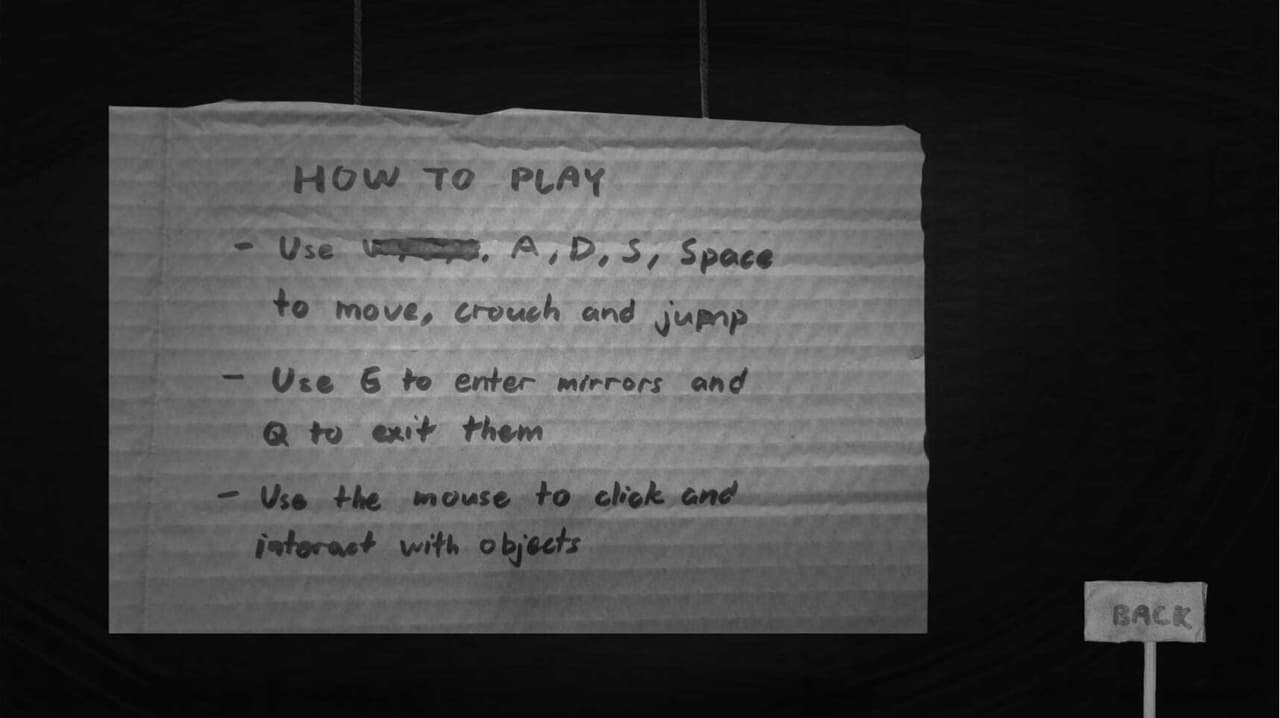 HOW TO PLAY
- Use , A, D, S, Space
to move, crouch and jump
- Use E to enter mirrors and
Q to exit them
- Use the mouse to click and
interact with objects
BACK